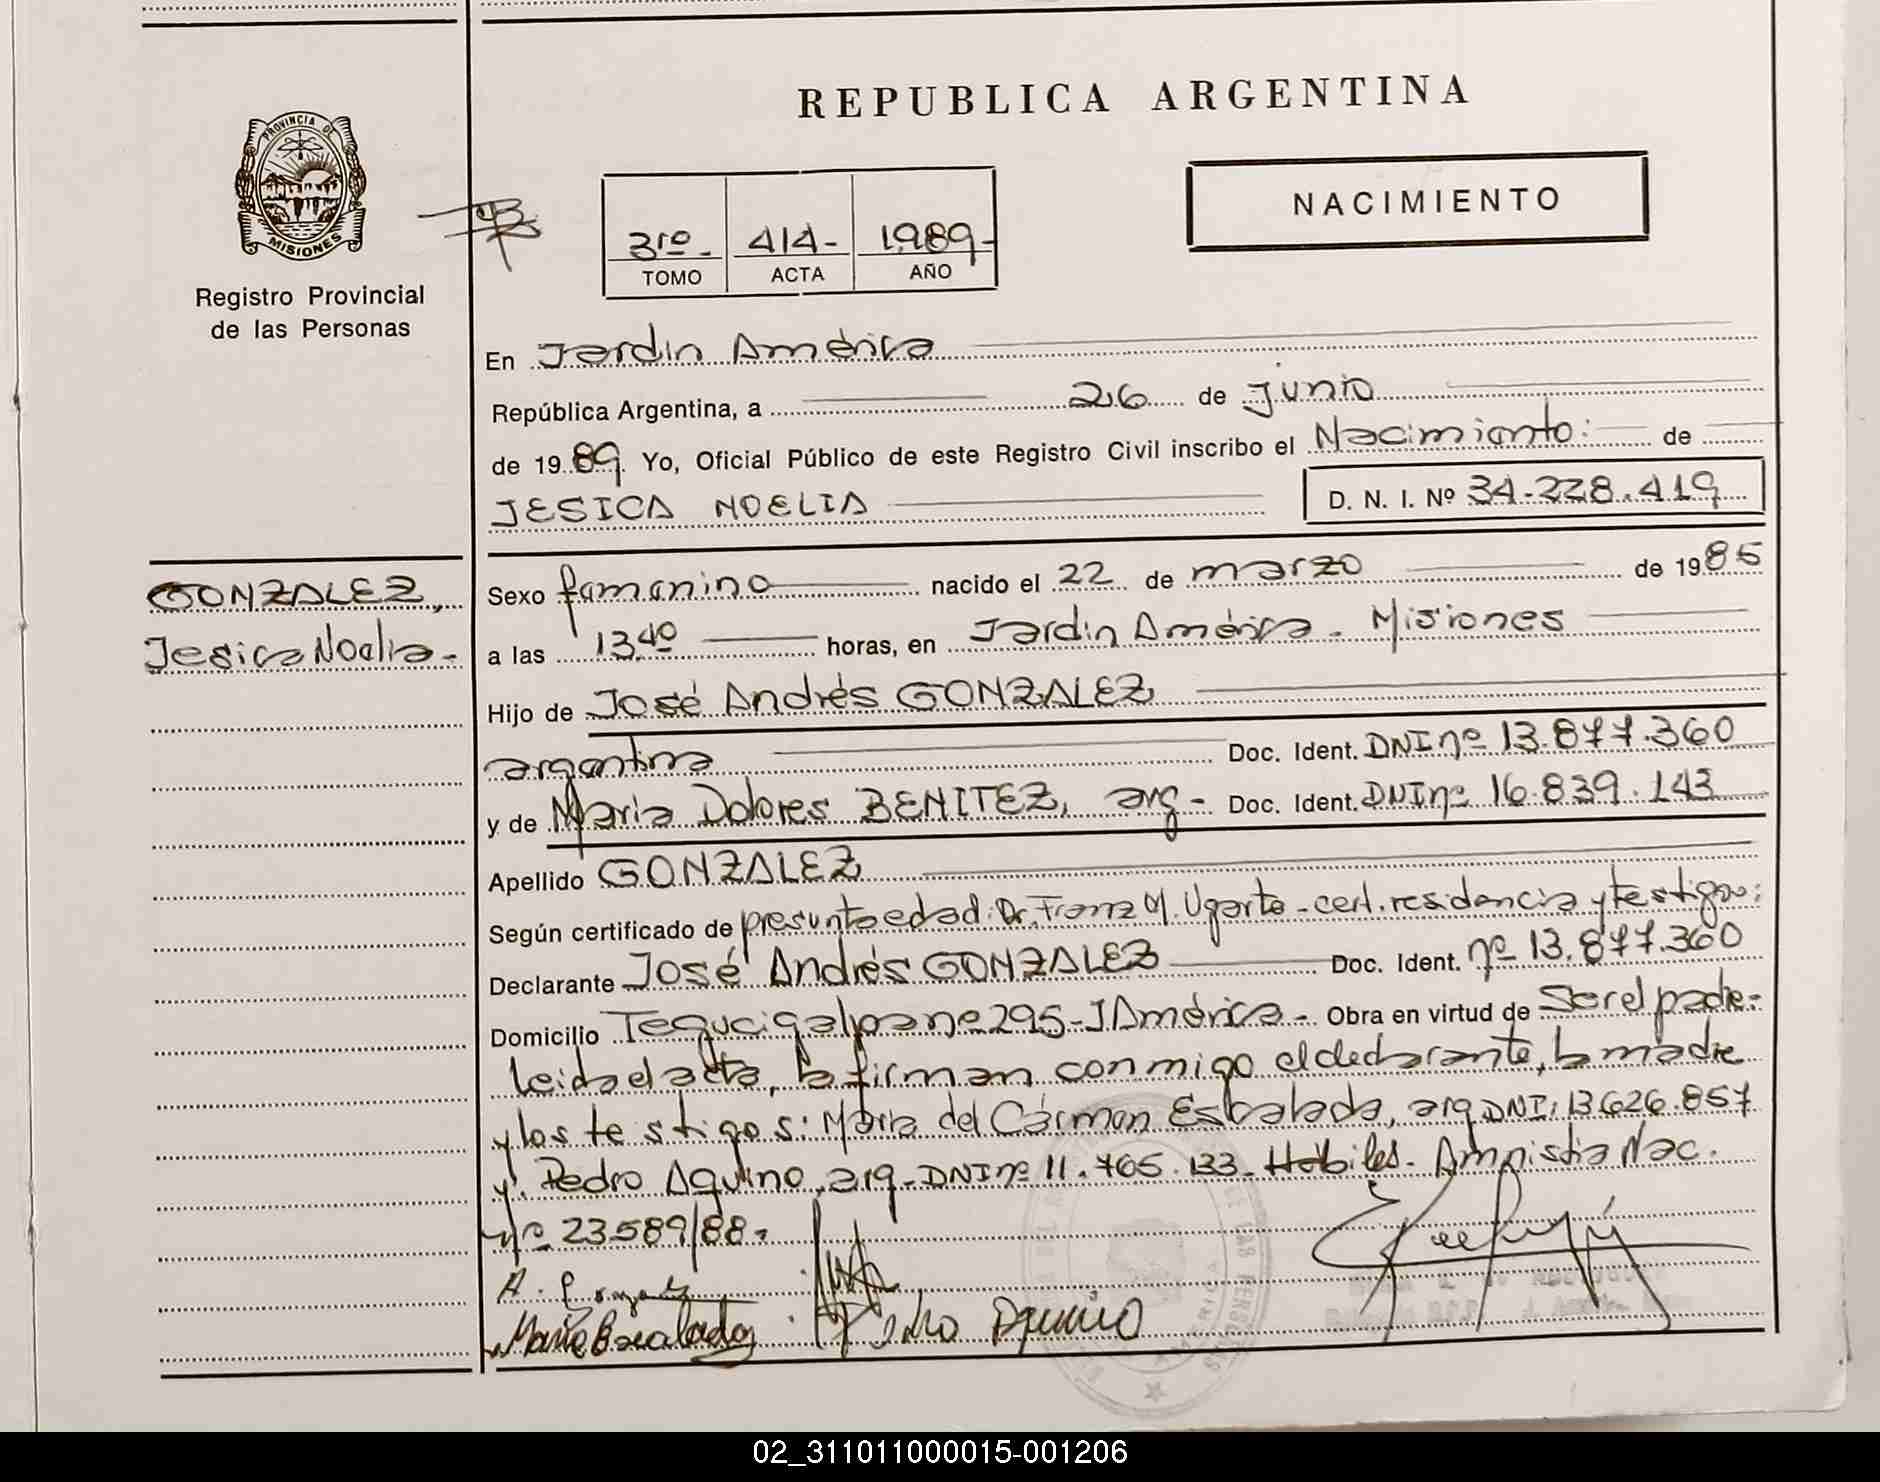 REPUBLICA ARGENTINA
PROVINCIA DE
MISIONES
Registro Provincial
de las Personas
3ro. 414- 1.989-
TOMO ACTA AÑO
NACIMIENTO
En Jardin América
República Argentina, a 26 de junio
de 19 89. Yo, Oficial Público de este Registro Civil inscribo el Nacimiento: de
JESICA NOELIA D. N. I. Nº 34.228.419
GONZALEZ,
Jesica Noelia-
Sexo femenino nacido el 22 de marzo de 1985
a las 13.40 horas, en Jardin América. Misiones
Hijo de José Andrés GONZALEZ
argentina Doc. Ident. DNI nº 13.877.360
y de Maria Dolores BENITEZ, arg- Doc. Ident. DNI nº 16.839.143
Apellido GONZALEZ
Según certificado de presunta edad: Dr. Franz M. Ugarte - cert. residencia y testigos:
Declarante José Andrés GONZALEZ Doc. Ident. nº 13.877.360
Domicilio Tegucigalpa nº 295- J América- Obra en virtud de Ser el padre.-
leida el acta, la firman conmigo el declarante, la madre
y los testigos: Maria del Cármen Escalada, arg DNI: 13.626.857
y. Pedro Aquino, arg- DNI nº 11.765.133- Habiles- Amnistia Nac.
nº 23589/88-
Maria Escalada Pedro Aquino
02_311011000015-001206